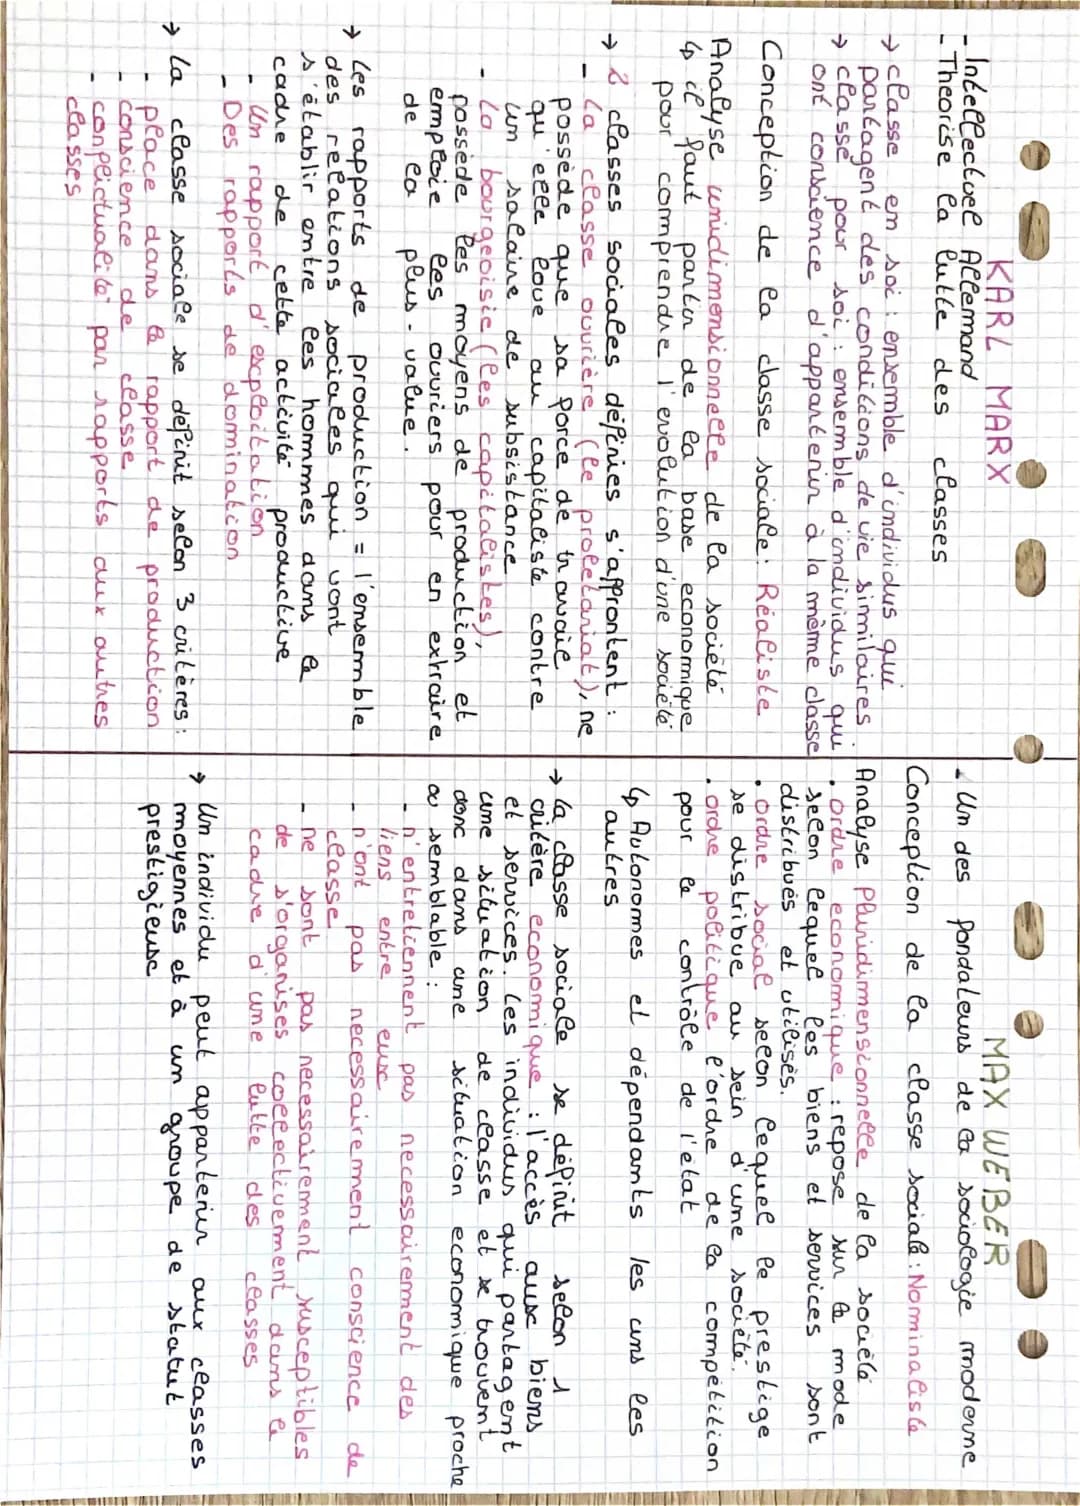 KARL MARX
- Intellectuel Allemand
- Théorise la lutte des classes
→ classe en soi : ensemble d'individus qui
partagent des conditions de vie similaires
→ classe pour soi : ensemble d'individus qui
ont conscience d'appartenir à la même classe
Conception de la classe sociale : Réaliste
Analyse unidimensionnelle de la société
↳ il faut partir de la base economique
pour comprendre l'evolution d'une société
→ 2 classes sociales définies s'affrontent :
- La classe ouvrière (le proletariat), ne
possède que sa force de travail
qu'elle loue au capitaliste contre
un salaire de subsistance
- La bourgeoisie (les capitalistes),
possède les moyens de production et
emploie les ouvriers pour en extraire
de la plus-value.
→ Les rapports de production = l'ensemble
des relations sociales qui vont
s'établir entre les hommes dans le
cadre de cette activité productive
- Un rapport d'exploitation
- Des rapports de domination
→ La classe sociale se définit selon 3 critères :
- place dans le rapport de production
- conscience de classe
- conflictualité par rapports aux autres
classes
MAX WEBER
- Un des fondateurs de la sociologie moderne
Conception de la classe sociale : Norminaliste
Analyse Pluridimmensionnelle de la société
. ordre economique : repose sur le mode
selon lequel les biens et services sont
distribués et utilisés.
. ordre social selon lequel le prestige
se distribue au sein d'une société.
. ordre politique l'ordre de la compétition
pour le contrôle de l'état
↳ Autonomes et dépendants les uns les
autres
→ la classe sociale se définit selon 1
critère economique : l'accès aux biens
et services. Les individus qui partagent
une situation de classe et se trouvent
donc dans une situation economique proche
ou semblable :
- n'entretiennent pas necessairement des
liens entre eux
- n'ont pas necessairement conscience de
classe
- ne sont pas necessairement susceptibles
de s'organises collectivement dans le
cadre d'une lutte des classes
→ Un individu peut appartenir aux classes
moyennes et à un groupe de statut
prestigieuse